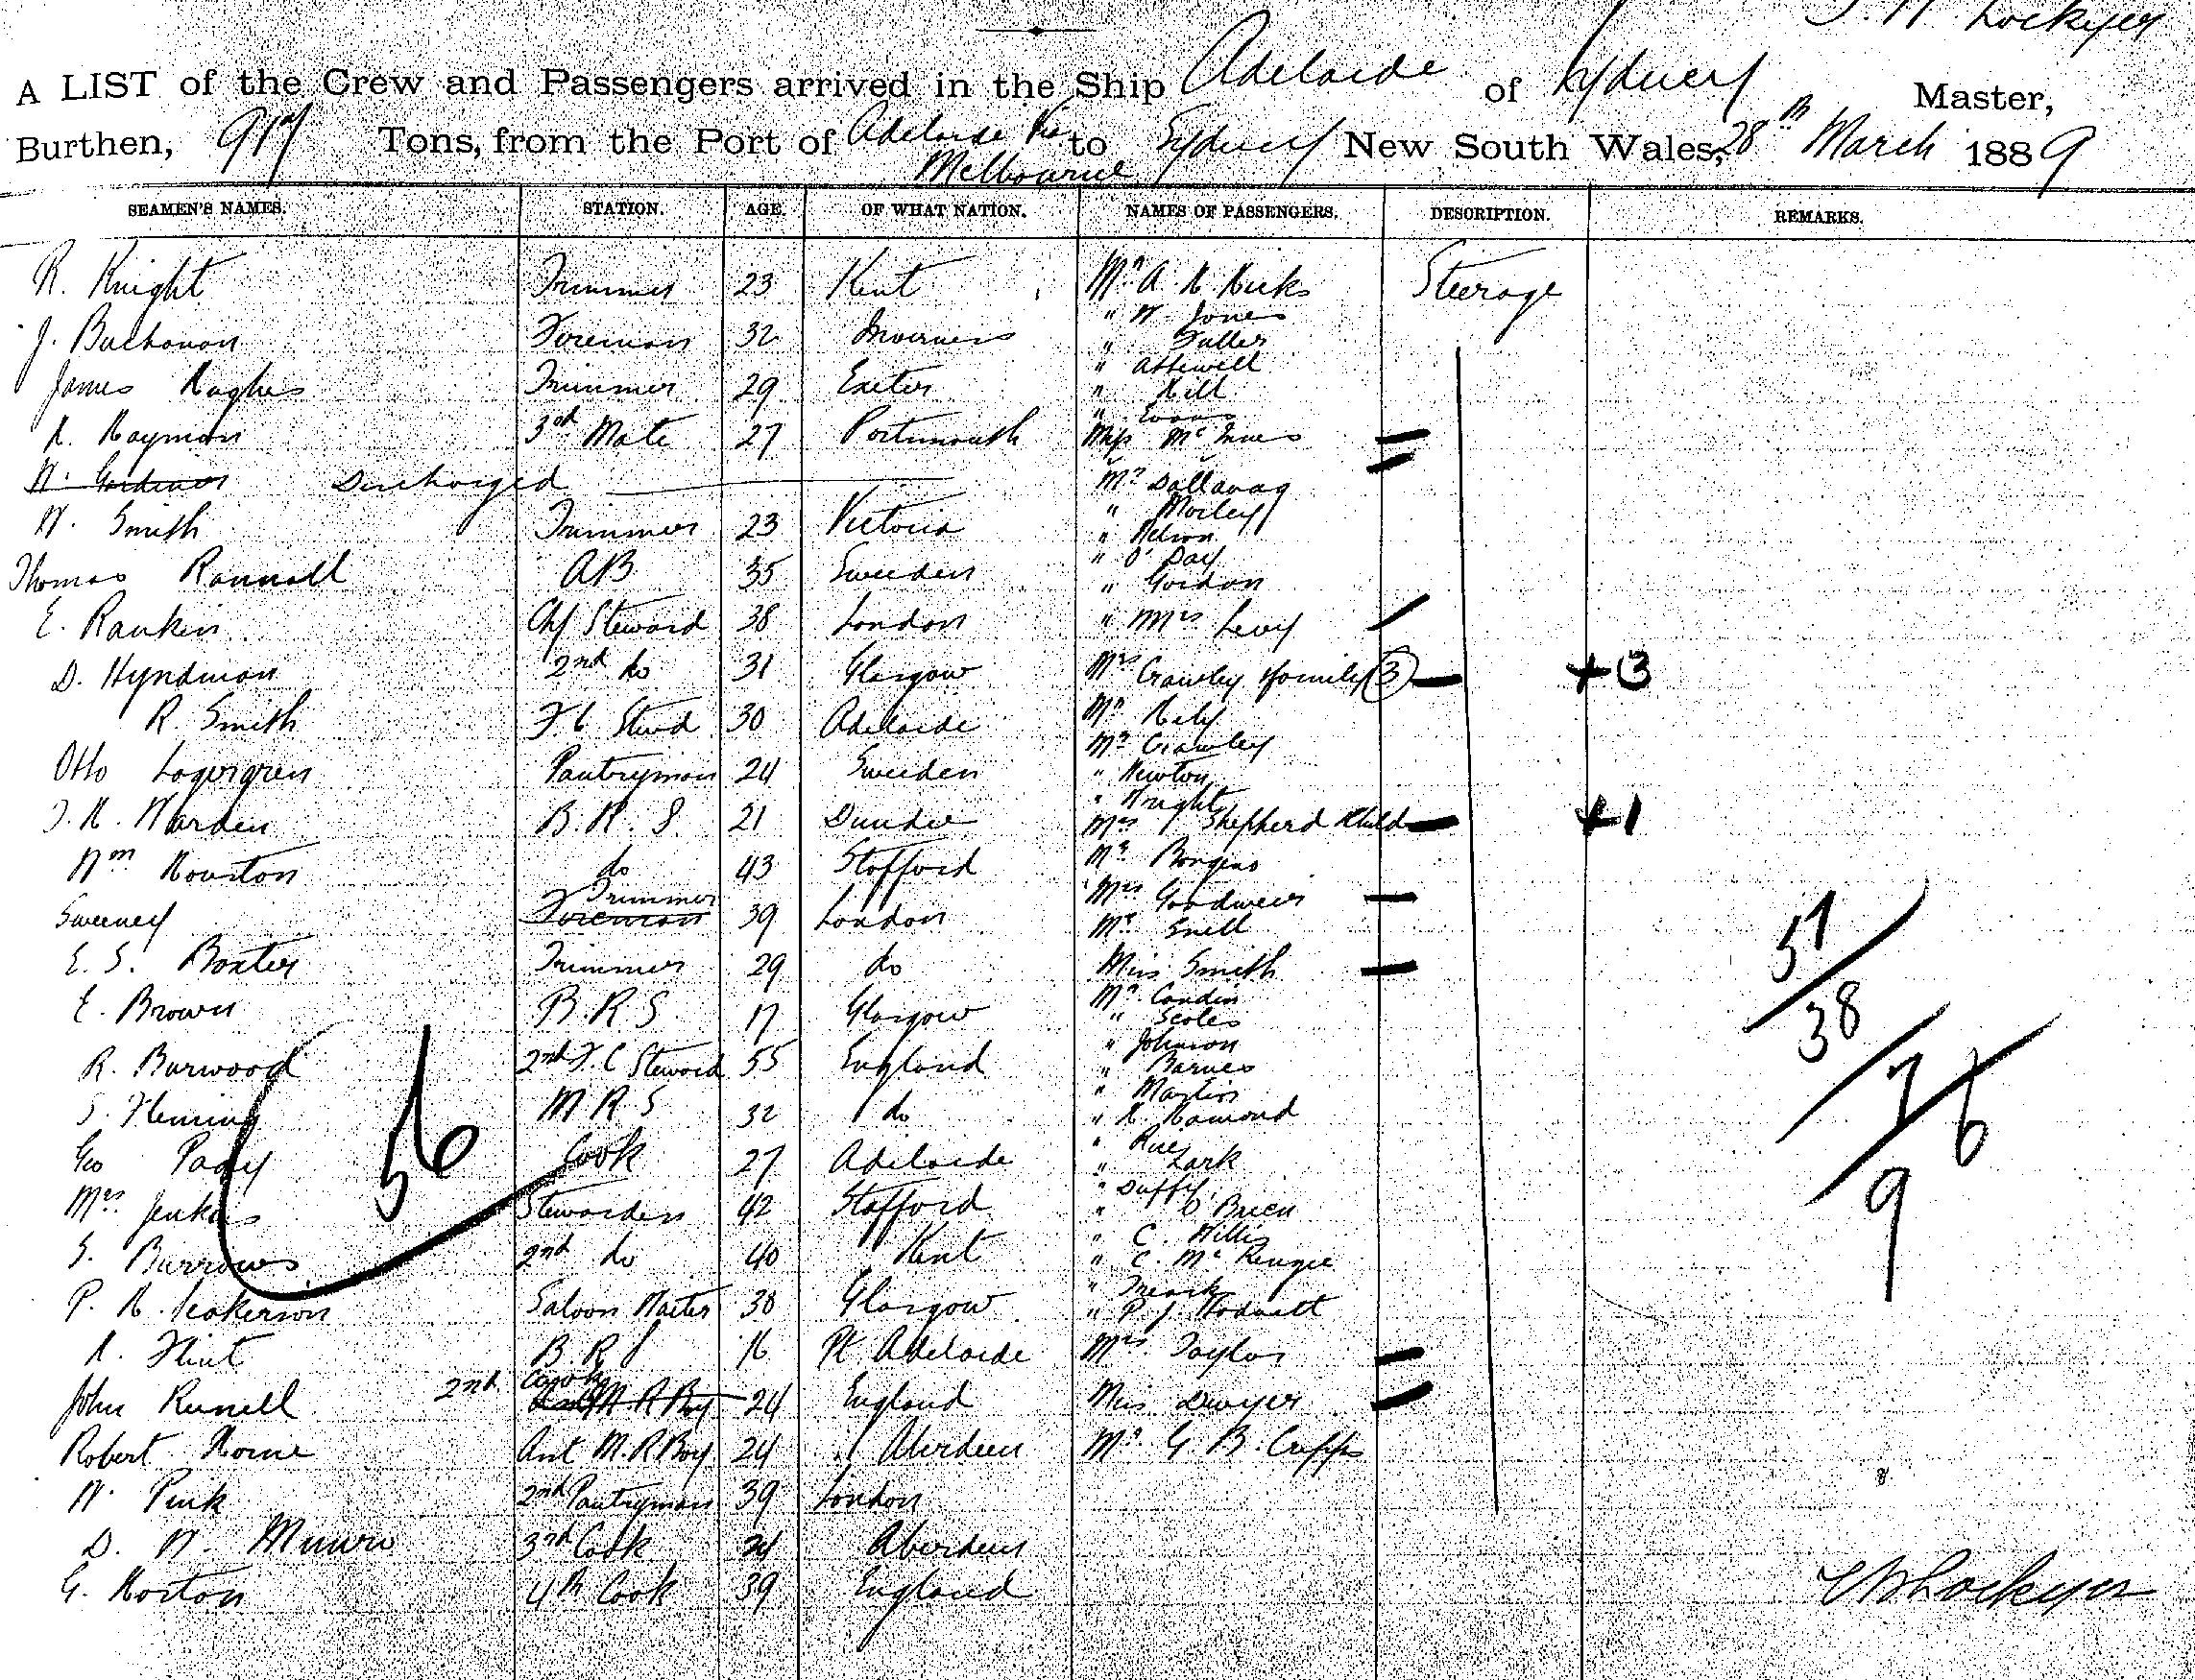 J. W. Lockyer
A LIST of the Crew and Passengers arrived in the Ship Adelaide of Sydney Master,
Burthen, 917 Tons, from the Port of Adelaide Via Melbourne to Sydney New South Wales, 28th March 1889
SEAMEN'S NAMES. STATION. AGE. OF WHAT NATION. NAMES OF PASSENGERS. DESCRIPTION. REMARKS.
R. Knight Trimmer 23 Kent Mr A. H. Hicks Steerage
" W. Jones
J. Buchanan Fireman 32 Inverness " Fuller
" Attewell
James Hughes Trimmer 29 Exeter " Hill
" Evans
H. Hayman 3rd Mate 27 Portsmouth Miss McInnes
W. Gardiner Discharged Mr
" Morley
W. Smith Trimmer 23 Victoria " Nelson
" O'Day
Thomas Rannall AB 35 Sweeden " Gordon
E. Rankin Chf Steward 38 London " Mrs Levy
D. Hyndman 2nd do 31 Glasgow Mrs Crawley & family (3) +3
R. Smith F C Stewd 30 Adelaide Mr Hely
Mr Crawley
Otto Lagergren Pantryman 24 Sweeden " Newton
" Wright
J. H. Warden B. R. S 21 Dundee Mrs Shepherd & Child +1
Wm Houston do 43 Stafford Mr
Trimmer Mrs
Sweeney Fireman 39 London Mr Snell
E. S. Baxter Trimmer 29 do Miss Smith
Mr
E. Brown B. R. S 17 Glasgow " Scoles
" Johnson
R. Burwood 2nd F. C Steward 55 England " Barnes
" Martin
S. Fleming M R S 32 do " H. Hamond
" Rice
Geo Pady Cook 27 Adelaide " Lark
" Duffy
Mrs Jenkins Stewardess 42 Stafford " O'Brien
" C. Willis
S. Burrows 2nd do 40 Kent " C. McKenzie
"
P. H. Saloon Waiter 38 Glasgow " P. J. Hodnett
H. Flint B. R S 16 Pt Adelaide Mrs Taylor
John Russell 2nd Cook M R Boy 24 England Miss Dwyer
Robert Horne Asst M. R Boy 24 Aberdeen Mr G. B. Cripps
W. Pink 2nd Pantryman 39 London
D. W. Munro 3rd Cook 24 Aberdeen
G. Horton 4th Cook 39 England
56
57
38
7
6
9
J W Lockyer